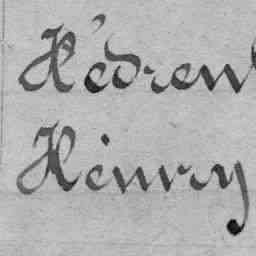 Hédren
Henry